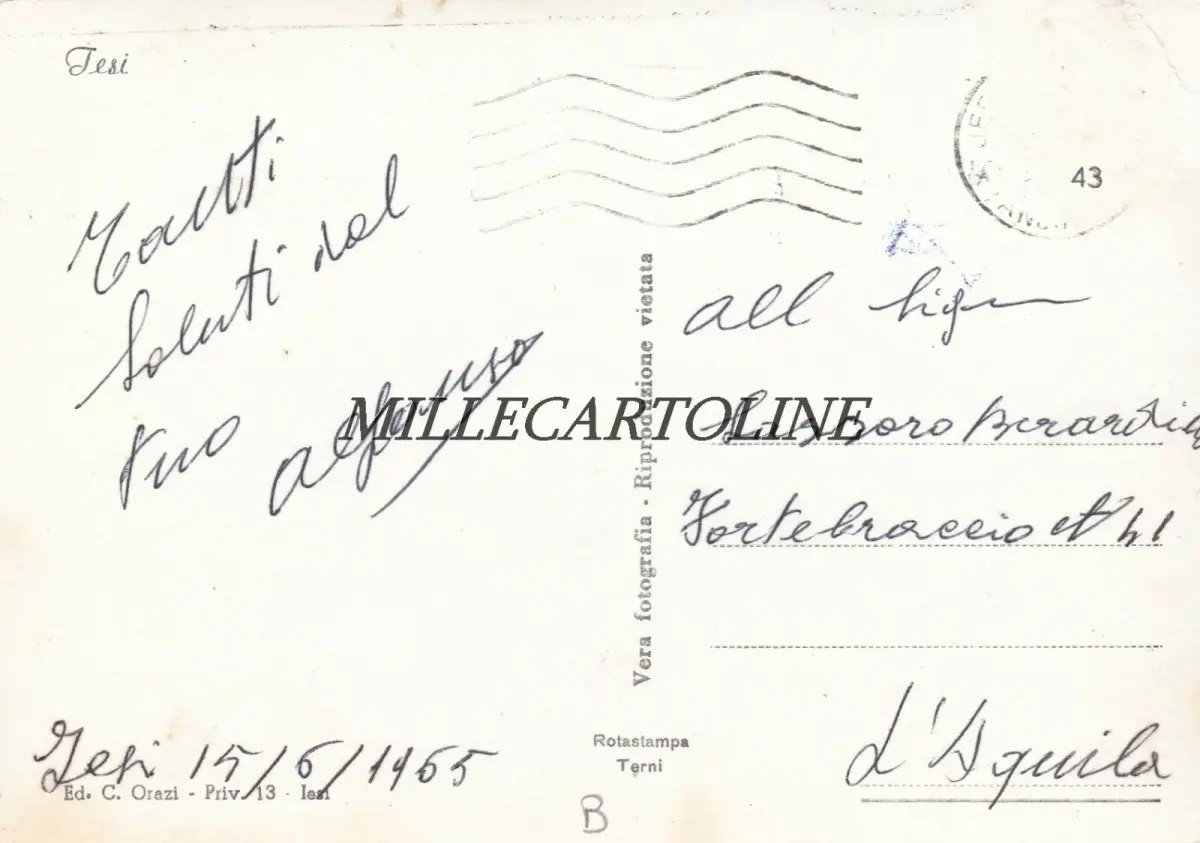 Iesi
Tanti
saluti dal
tuo Alfonso
Jesi 15/6/1965
Ed. C. Orazi - Priv. 13 - Iesi
MILLECARTOLINE
Vera fotografia - Riproduzione vietata
Rotastampa
Terni
B
43
ANCO
All Sig
Berardi
Fortebraccio N° 41
L'Aquila